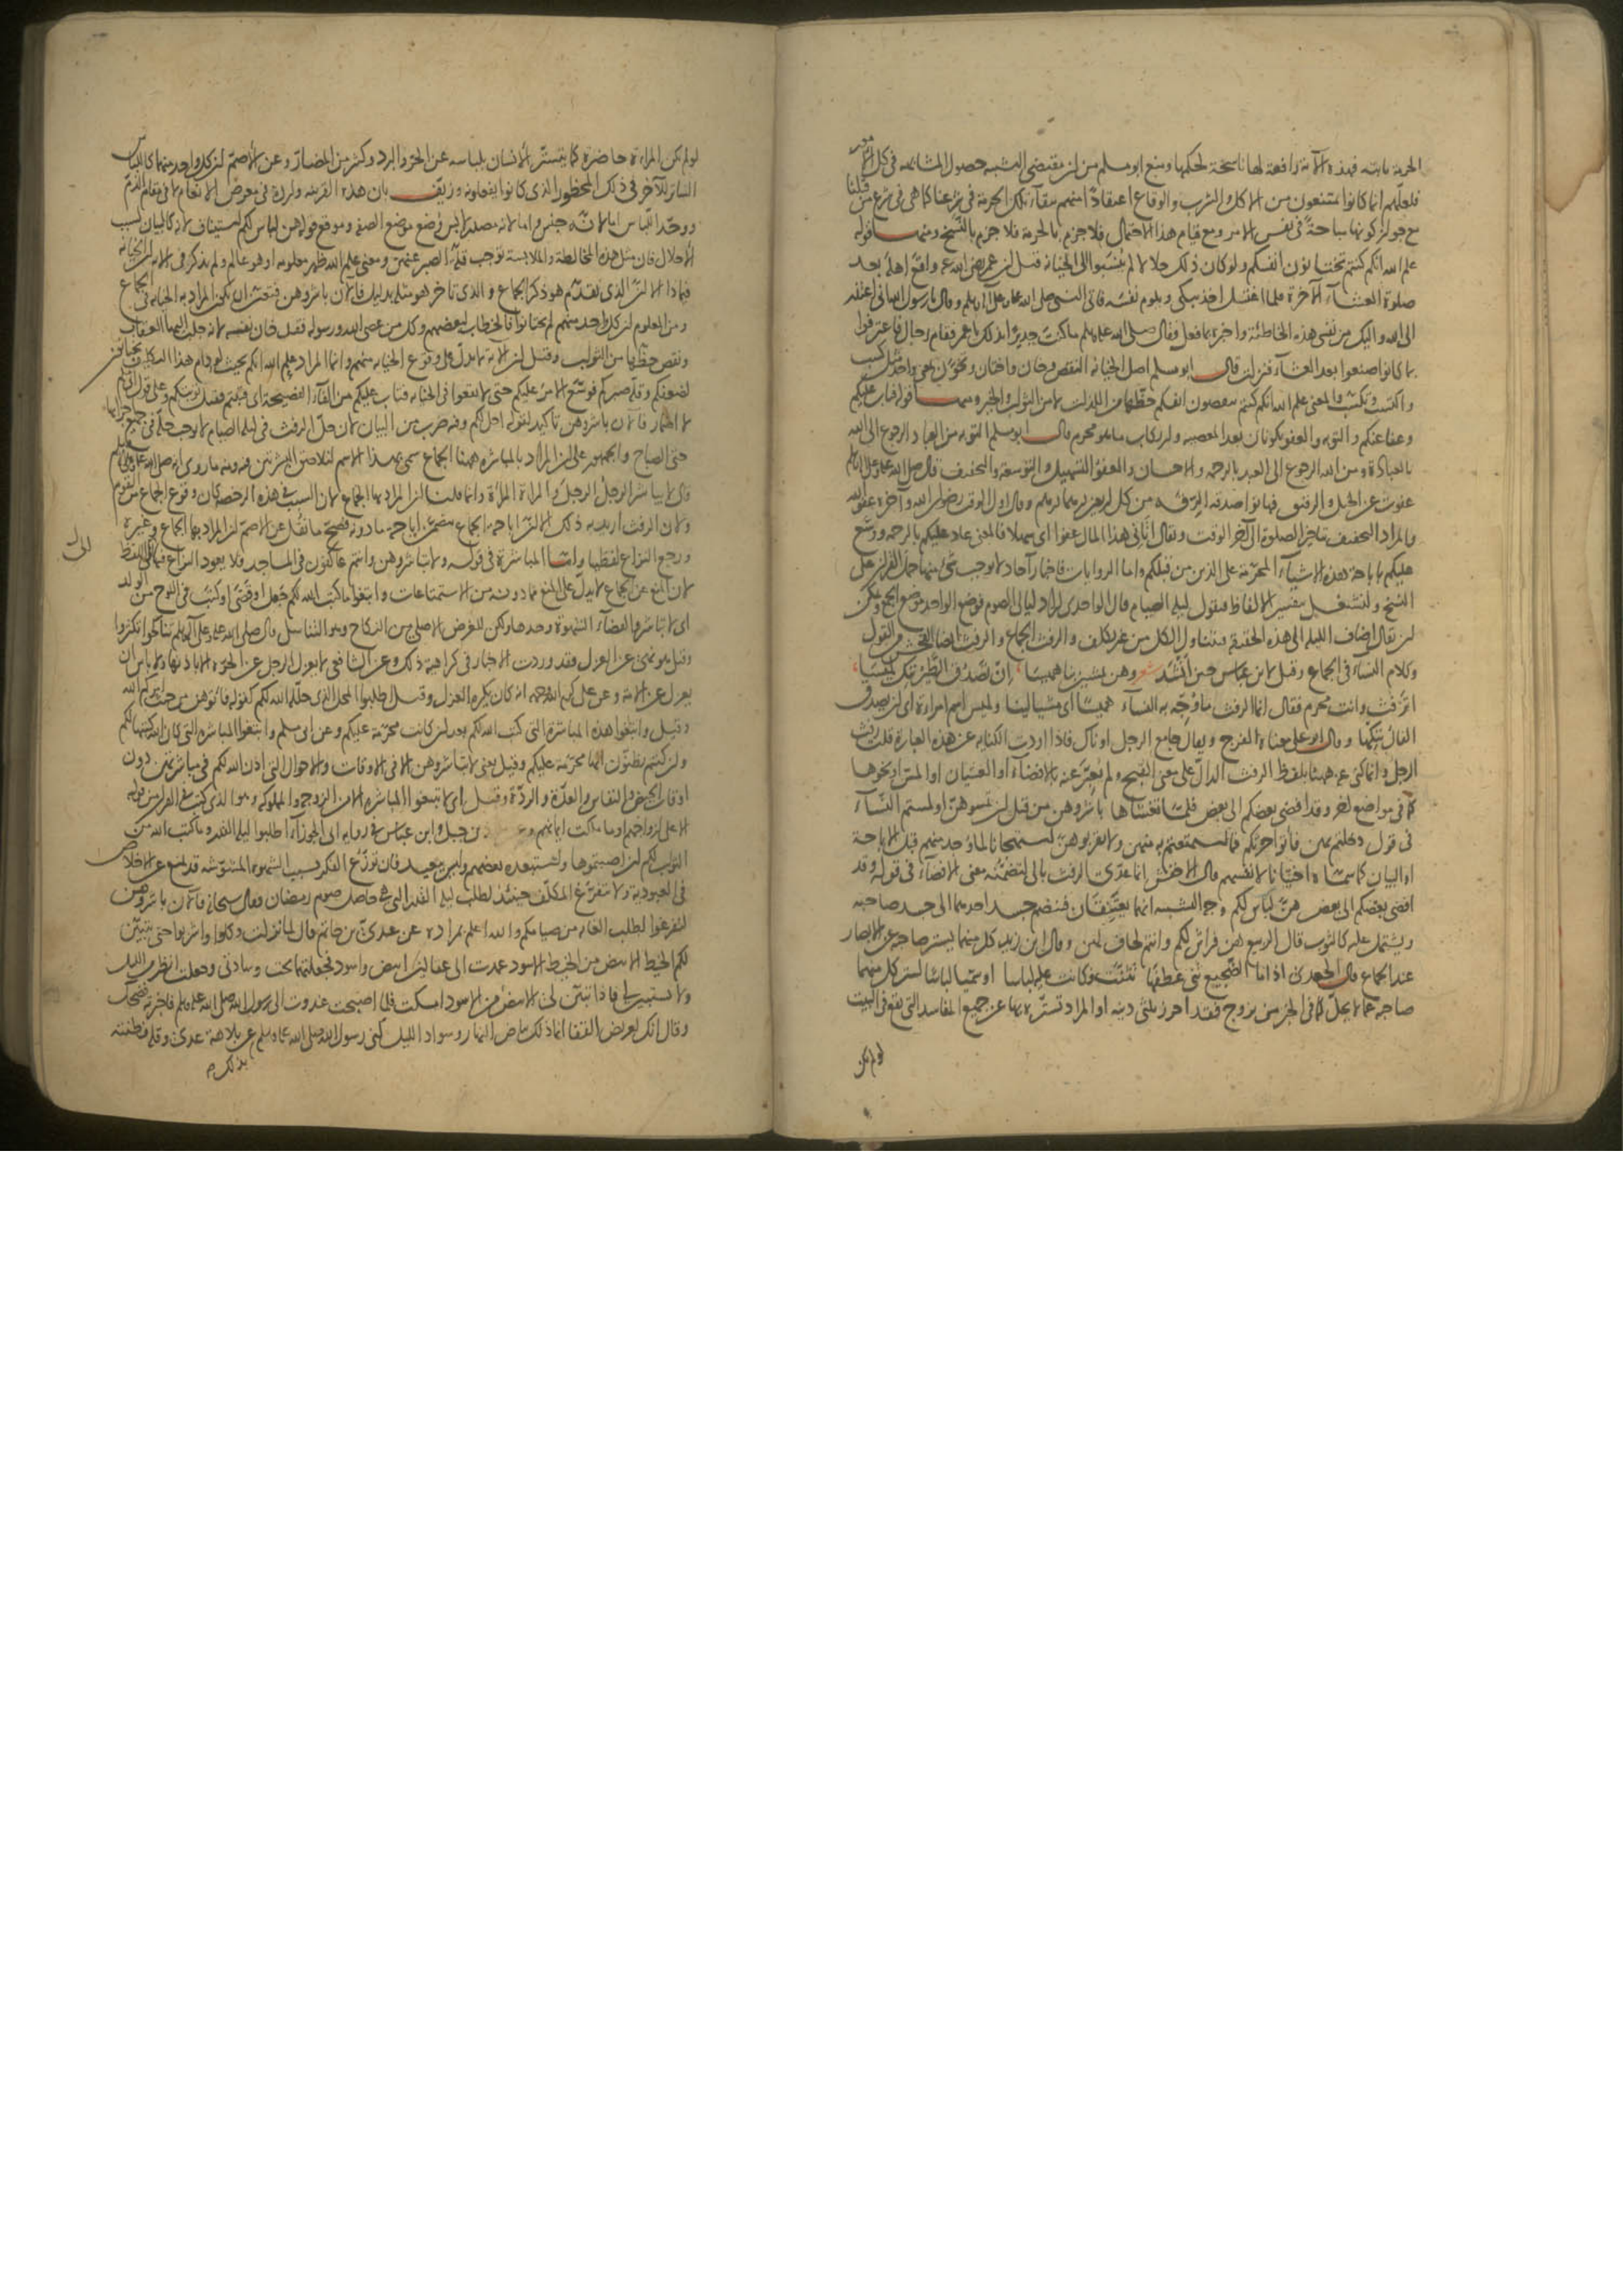 الحرمة ثابتة فهذه الآية رافعة لها ناسخة لحكمها ومنع ابو مسلم من ان مقتضى التشبيه حصول المشابهة في كل الامور
فلعلهم انما كانوا يمتنعون من الاكل والشرب والوقاع اعتقادًا منهم بقاء تلك الحرمة في شرعنا كما هي في شرع من قبلنا
مع جواز كونها مباحة في نفس الامر ومع قيام هذا الاحتمال فلا جزم بالحرمة فلا جزم بالنسخ ومنها قوله
علم الله انكم كنتم تختانون انفسكم ولو كان ذلك حلالا لم ينسبوا الى الخيانة قيل ان عمر رضي الله عنه واقع اهله بعد
صلوة العشاء الآخرة فلما اغتسل اخذ يبكي ويلوم نفسه فاتى النبي صلى الله عليه وعلى آله وسلم وقال يا رسول الله اني اعتذر
الى الله واليك من نفسي هذه الخاطئة واخبره بما فعل فقال صلى الله عليه وسلم ما كنت جديرًا بذلك يا عمر فقام رجال فاعترفوا
بما كانوا صنعوا بعد العشاء فنزلت قال ابو مسلم اصل الخيانة النقص وخان واختان وتخون بمعنى واحد مثل كسب
واكتسب وتكسب والمعنى علم الله انكم كنتم تنقصون انفسكم حظها من اللذات لا من الثواب والخير ومنها قوله فتاب عليكم
وعفا عنكم والتوبة والعفو يكونان بعد المعصية وارتكاب ما هو محرم قال ابو مسلم التوبة من العباد الرجوع الى الله
بالعبادة ومن الله الرجوع الى العبد بالرحمة والاحسان والعفو التسهيل والتوسعة والتخفيف قال صلى الله عليه وعلى آله وسلم
عفوت عن الخيل والرقيق فهاتوا صدقة الرقة من كل اربعين درهما درهم وقال اول الوقت رضوان الله وآخره عفو الله
والمراد التخفيف بتاخير الصلوة الى آخر الوقت ويقال اتاني هذا المال عفوا اى سهلا فالمعنى عاد عليكم بالرحمة ووسع
عليكم باباحة هذه الاشياء المحرمة على الذين من قبلكم واما الروايات فاخبار آحاد لا يوجب شئ منها حمل القرآن على
النسخ ولنشتغل بتفسير الالفاظ فنقول ليلة الصيام قال الواحدي اراد ليالي الصوم فوضع الواحد موضع الجمع ويمكن
ان يقال اضاف الليلة الى هذه الحقيقة فتتناول الكل من غير تكلف والرفث الجماع والرفث ايضا الفحش من القول
وكلام النساء في الجماع وقيل لابن عباس حين انشد شعر وهن يمشين بنا هميسا ، ان تصدق الطير ننك لميسا ،
اترفث وانت محرم فقال انما الرفث ما ووجه به النساء هميسًا اى مشيا لينا ولميس اسم امراة اى ان يصدق
الفال ننكها وقال ابو علي معناه الفرج ويقال جامع الرجل او ناك فاذا اردت الكناية عن هذه العبارة قلت رفث
الرجل وانما كنى عنه ههنا بلفظ الرفث الدال على معنى القبح ولم يعبر عنه بالافضاء او الغشيان او المس او نحوها
كما في مواضع اخر وقد افضى بعضكم الى بعض فلما تغشاها باشروهن من قبل ان تمسوهن او لمستم النساء
في قول دخلتم بهن فاتوا حرثكم فما استمتعتم به منهن ولا تقربوهن استهجانا لما وجد منهم قبل الاباحة
او البيان كما سماه اختيانا لانفسهم قال الاخفش انما عدى الرفث بالى لتضمنه معنى الافضاء في قوله وقد
افضى بعضكم الى بعض هن لباس لكم وجه التشبيه انهما يعتنقان فينضم جسد احدهما الى جسد صاحبه
ويشتمل عليه كالثوب قال الربيع هن فراش لكم وانتم لحاف لهن وقال ابن زيد كل منهما يستر صاحبه عن الابصار
عند الجماع قال الجعدي اذا ما الضجيع ثنى عطفها تثنت فكانت عليه لباسا او سميا لباسًا لستر كل منهما
صاحبه عما لا يحل كما في الخبر من تزوج فقد احرز ثلثي دينه او المراد تستره بها عن جميع المفاسد التي تقع في البيت
لو لم تكن
لو لم تكن المراة حاضرة كما يتستر الانسان بلباسه عن الحر والبرد وكثير من المضار وعن الاصم ان كل واحد منهما كاللباس
الساتر للآخر في ذلك المحظور الذي كانوا يفعلونه وزيف بان هذه القرينة واردة في معرض الانعام لا في مقام الذم
ووحد اللباس اما لانه جنس واما لانه مصدر لابس وضع موضع الصفة وموقع قوله هن لباس لكم استيناف لانه كالبيان لسبب
الاحلال فان مثل هذه المخالطة والملابسة توجب قلة الصبر عنهن ومعنى علم الله ظهر معلومه او هو عالم ولم يذكر في الآية ان الخيانة
فيماذا الا ان الذي تقدم هو ذكر الجماع والذي تاخر هو مثله بدليل فالآن باشروهن فتعين ان يكون المراد به الخيانة في الجماع
ومن المعلوم ان كل واحد منهم لم يختانوا فالخطاب لبعضهم وكل من عصى الله ورسوله فقد خان نفسه لانه جلب اليها العقاب
ونقص حظها من الثواب وقيل ان الآية لا تدل على وقوع الخيانة منهم وانما المراد علم الله انكم بحيث لو دام هذا التكليف تختانون
لضعفكم وقلة صبركم فوسع الامر عليكم حتى لا تقعوا في الخيانة فتاب عليكم من الفاء الفصيحة اى فتبتم فقبل توبتكم وعلى قول ابي مسلم
لا اضمار فالآن باشروهن تاكيد لقوله احل لكم وفيه ضرب من البيان لان حل الرفث في ليلة الصيام لا يوجب حله في جميع اجزائها
حتى الصباح والجمهور على ان المراد بالمباشرة ههنا الجماع سمى بهذا الاسم لتلاصق البشرتين فيه ومنه ما روى انه صلى الله عليه وعلى آله وسلم
قال لا يباشر الرجل الرجل والمراة المراة وانما قلنا ان المراد بها الجماع لان السبب في هذه الرخصة كان وقوع الجماع من القوم
ولان الرفث اريد به ذلك الا ان اباحة الجماع تتضمن اباحة ما دونه فصح ما نقل عن الاصم ان المراد بها الجماع وغيره
ورجع النزاع لفظيا واما المباشرة في قوله ولا تباشروهن وانتم عاكفون في المساجد فلا يعود النزاع فيها الى اللفظ
لان المنع عن الجماع لا يدل على المنع مما دونه من الاستمتاعات وابتغوا ما كتب الله لكم جعل او قضى او كتب في اللوح من الولد
اى لا تباشروا لقضاء الشهوة وحدها ولكن للغرض الاصلي من النكاح وهو التناسل قال صلى الله عليه وعلى آله وسلم تناكحوا تكثروا
وقيل هو نهى عن العزل فقد وردت الاخبار في كراهية ذلك وعن الشافعي لا يعزل الرجل عن الحرة الا باذنها ولا باس ان
يعزل عن الامة وعن علي كرم الله وجهه انه كان يكره العزل وقيل اطلبوا المحل الذي حلله الله لكم كقوله فاتوهن من حيث امركم الله
وقيل وابتغوا هذه المباشرة التي كتب الله لكم بعد ان كانت محرمة عليكم وعن ابي مسلم وابتغوا المباشرة التي كان الله كتبها لكم
وان كنتم تظنون انها محرمة عليكم وقيل يعني لا تباشروهن الا في الاوقات والاحوال التي اذن الله لكم في مباشرتهن دون
اوقات الحيض والنفاس والعدة والردة وقيل اى لا تبتغوا المباشرة الا من الزوجة والمملوكة وهو الذي كتب في القرآن من قوله
الا على ازواجهم او ما ملكت ايمانهم وعن بن جبل وابن عباس في رواية ابي الجوزاء اطلبوا ليلة القدر وما كتب الله من
الثواب لكم ان اصبتموها واستبعده بعضهم وليس ببعيد فان توزع الفكر بسبب الشهوة المشوشة قد يمنع عن الاخلاص
في العبودية ولا يتفرغ المكلف حينئذ لطلب ليلة القدر التي هي حاصل صوم رمضان فقال سبحانه فالآن باشروهن
لتفرغوا لطلب الغاية من صيامكم والله اعلم بمراده عن عدي بن حاتم قال لما نزلت وكلوا واشربوا حتى يتبين
لكم الخيط الابيض من الخيط الاسود عمدت الى عقالين ابيض واسود فجعلتهما تحت وسادتي وجعلت انظر في الليل
ولا يستبين لي فاذا تبين لي الابيض من الاسود امسكت فلما اصبحت غدوت الى رسول الله صلى الله عليه وسلم فاخبرته فضحك
وقال انك لعريض القفا انما ذلك بياض النهار وسواد الليل كنى رسول الله صلى الله عليه وسلم عن بلاهة عدي وقلة فطنته
بذلك